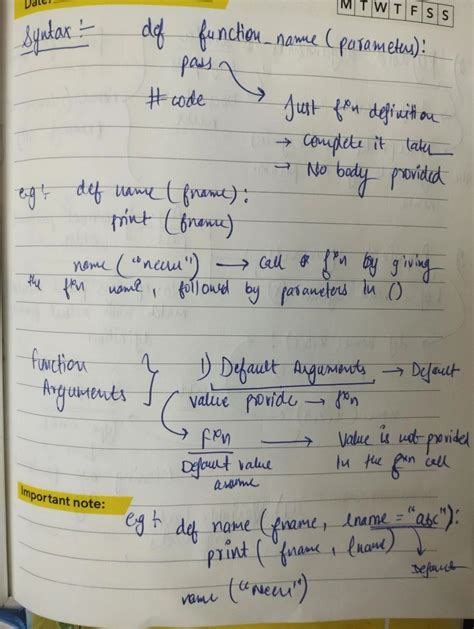 Date:
M T W T F S S
Syntax :- def function_name (parameters):
pass
# code
Just fxn definition
→ Complete it later
→ No body provided
eg :- def name (fname):
print (fname)
name ("neeru") → call a fxn by giving
the fxn name, followed by parameters in ()
Function Arguments } 1) Default Arguments → Default
value provide → fxn
fxn → Value is not provided
Default value assume in the fxn call
Important note:
eg :- def name (fname, lname = "abc"):
print (fname, lname)
Default
name ("neeru")